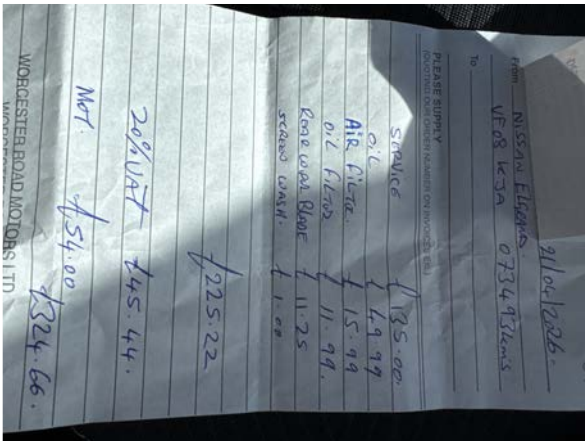 21/04/2026.
From NISSAN ELGRAND.
VF08 KJA 073493kms
To
PLEASE SUPPLY
(QUOTING OUR ORDER NUMBER ON INVOICE, etc.)
SERVICE £135.00.
OIL £49.99
AIR FILTER. £15.99
OIL FILTER £11.99.
REAR WIPER BLADE £11.25
SCREEN WASH. £1.00
£225.22
20% VAT £45.44.
MOT. £54.00
£324.66.
WORCESTER ROAD MOTORS LTD